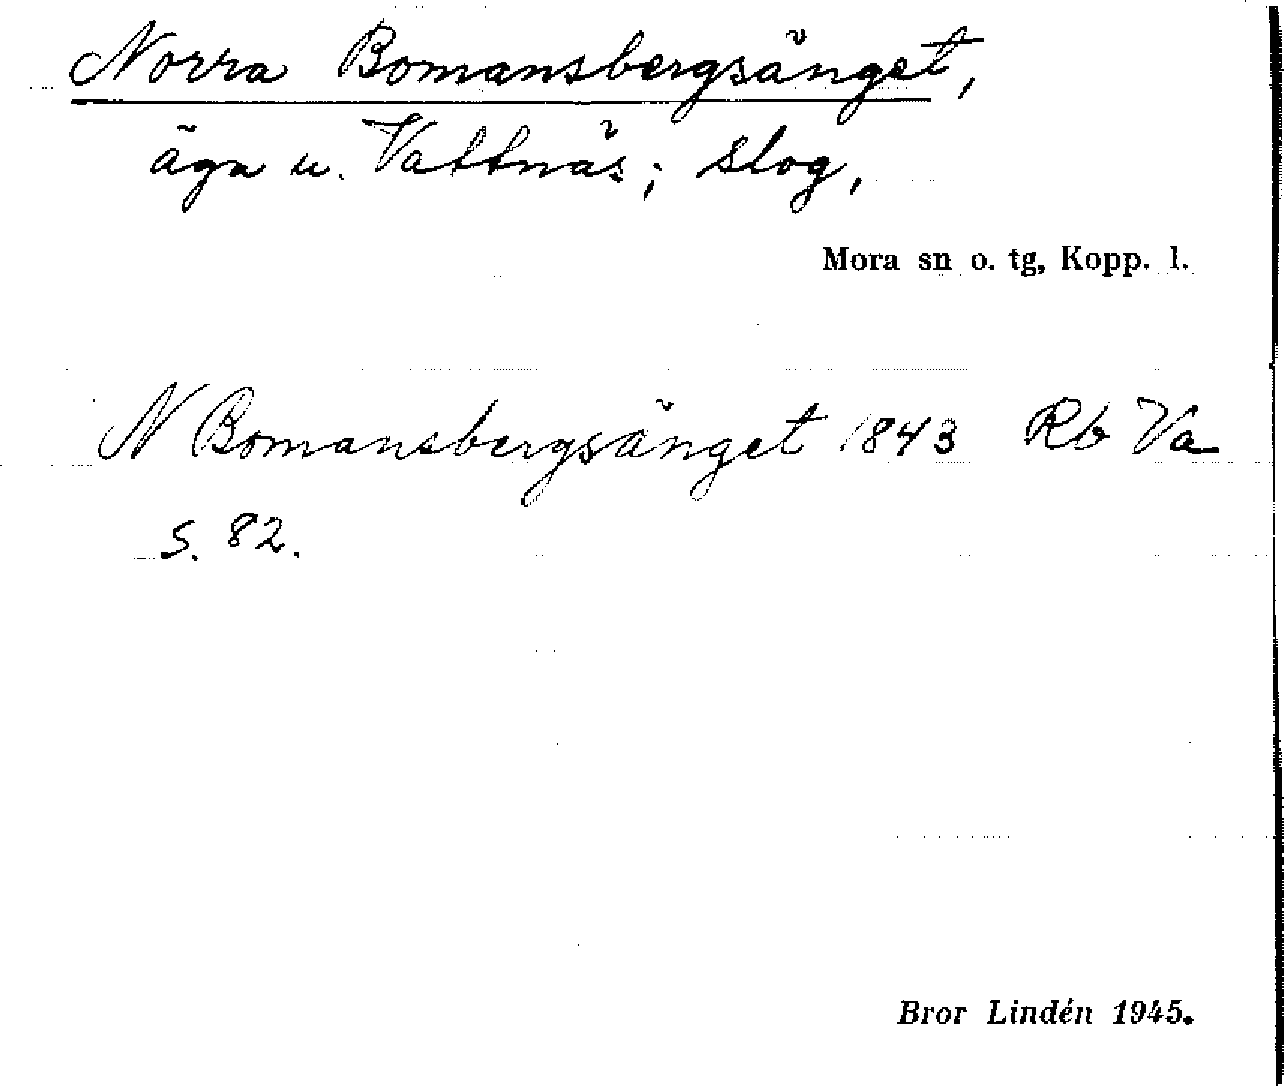 Norra Bomansbergsänget,
äga u. Vattnäs; slog,
Mora sn o. tg, Kopp. l.
N Bomansbergsänget 1843 Rb Va
s. 82.
Bror Lindén 1945.